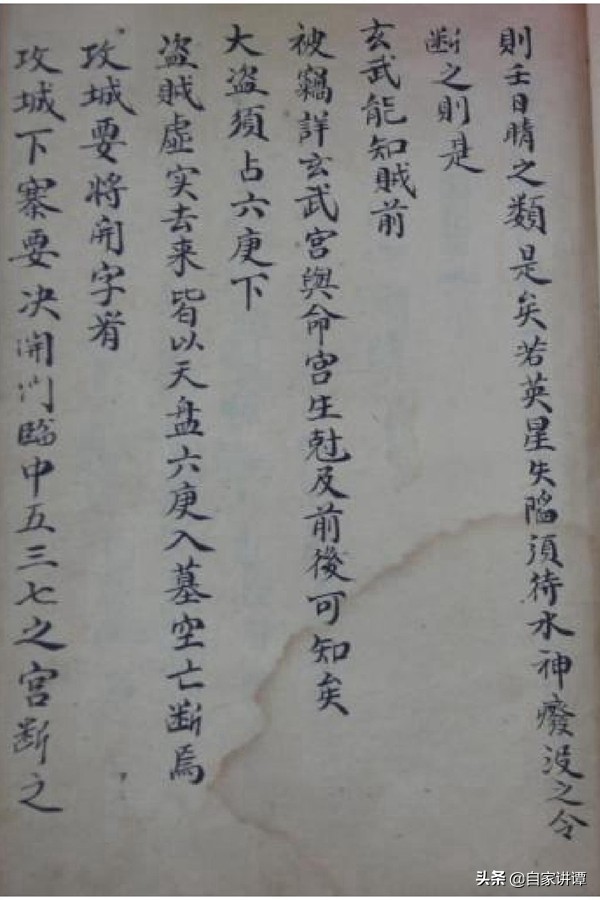 則壬日晴之類是矣若英星失陷須待水神癈没之令
断之則是
玄武能知贼前
被竊詳玄武宫與命宫生尅及前後可知矣
大盗须占六庚下
盗贼虚实去来皆以天盘六庚入墓空亡断焉
攻城要将開字肯
攻城下寨要决開门臨中五三七之宫断之
头条 @自家讲谭